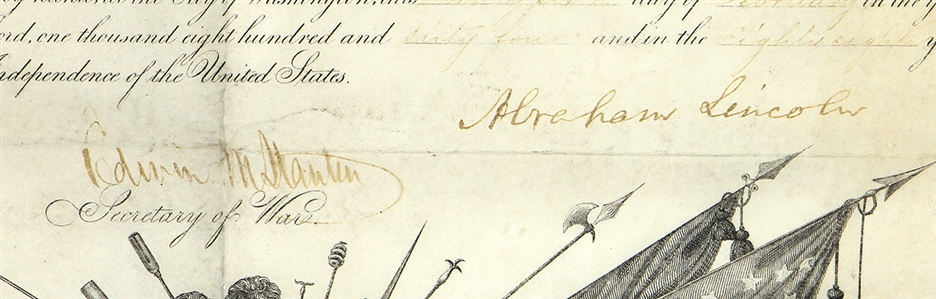 the City of Washington, this day of February in the
one thousand eight hundred and sixty four and in the Eighty eighth
Independence of the United States.
Abraham Lincoln
Edwin M Stanton
Secretary of War.